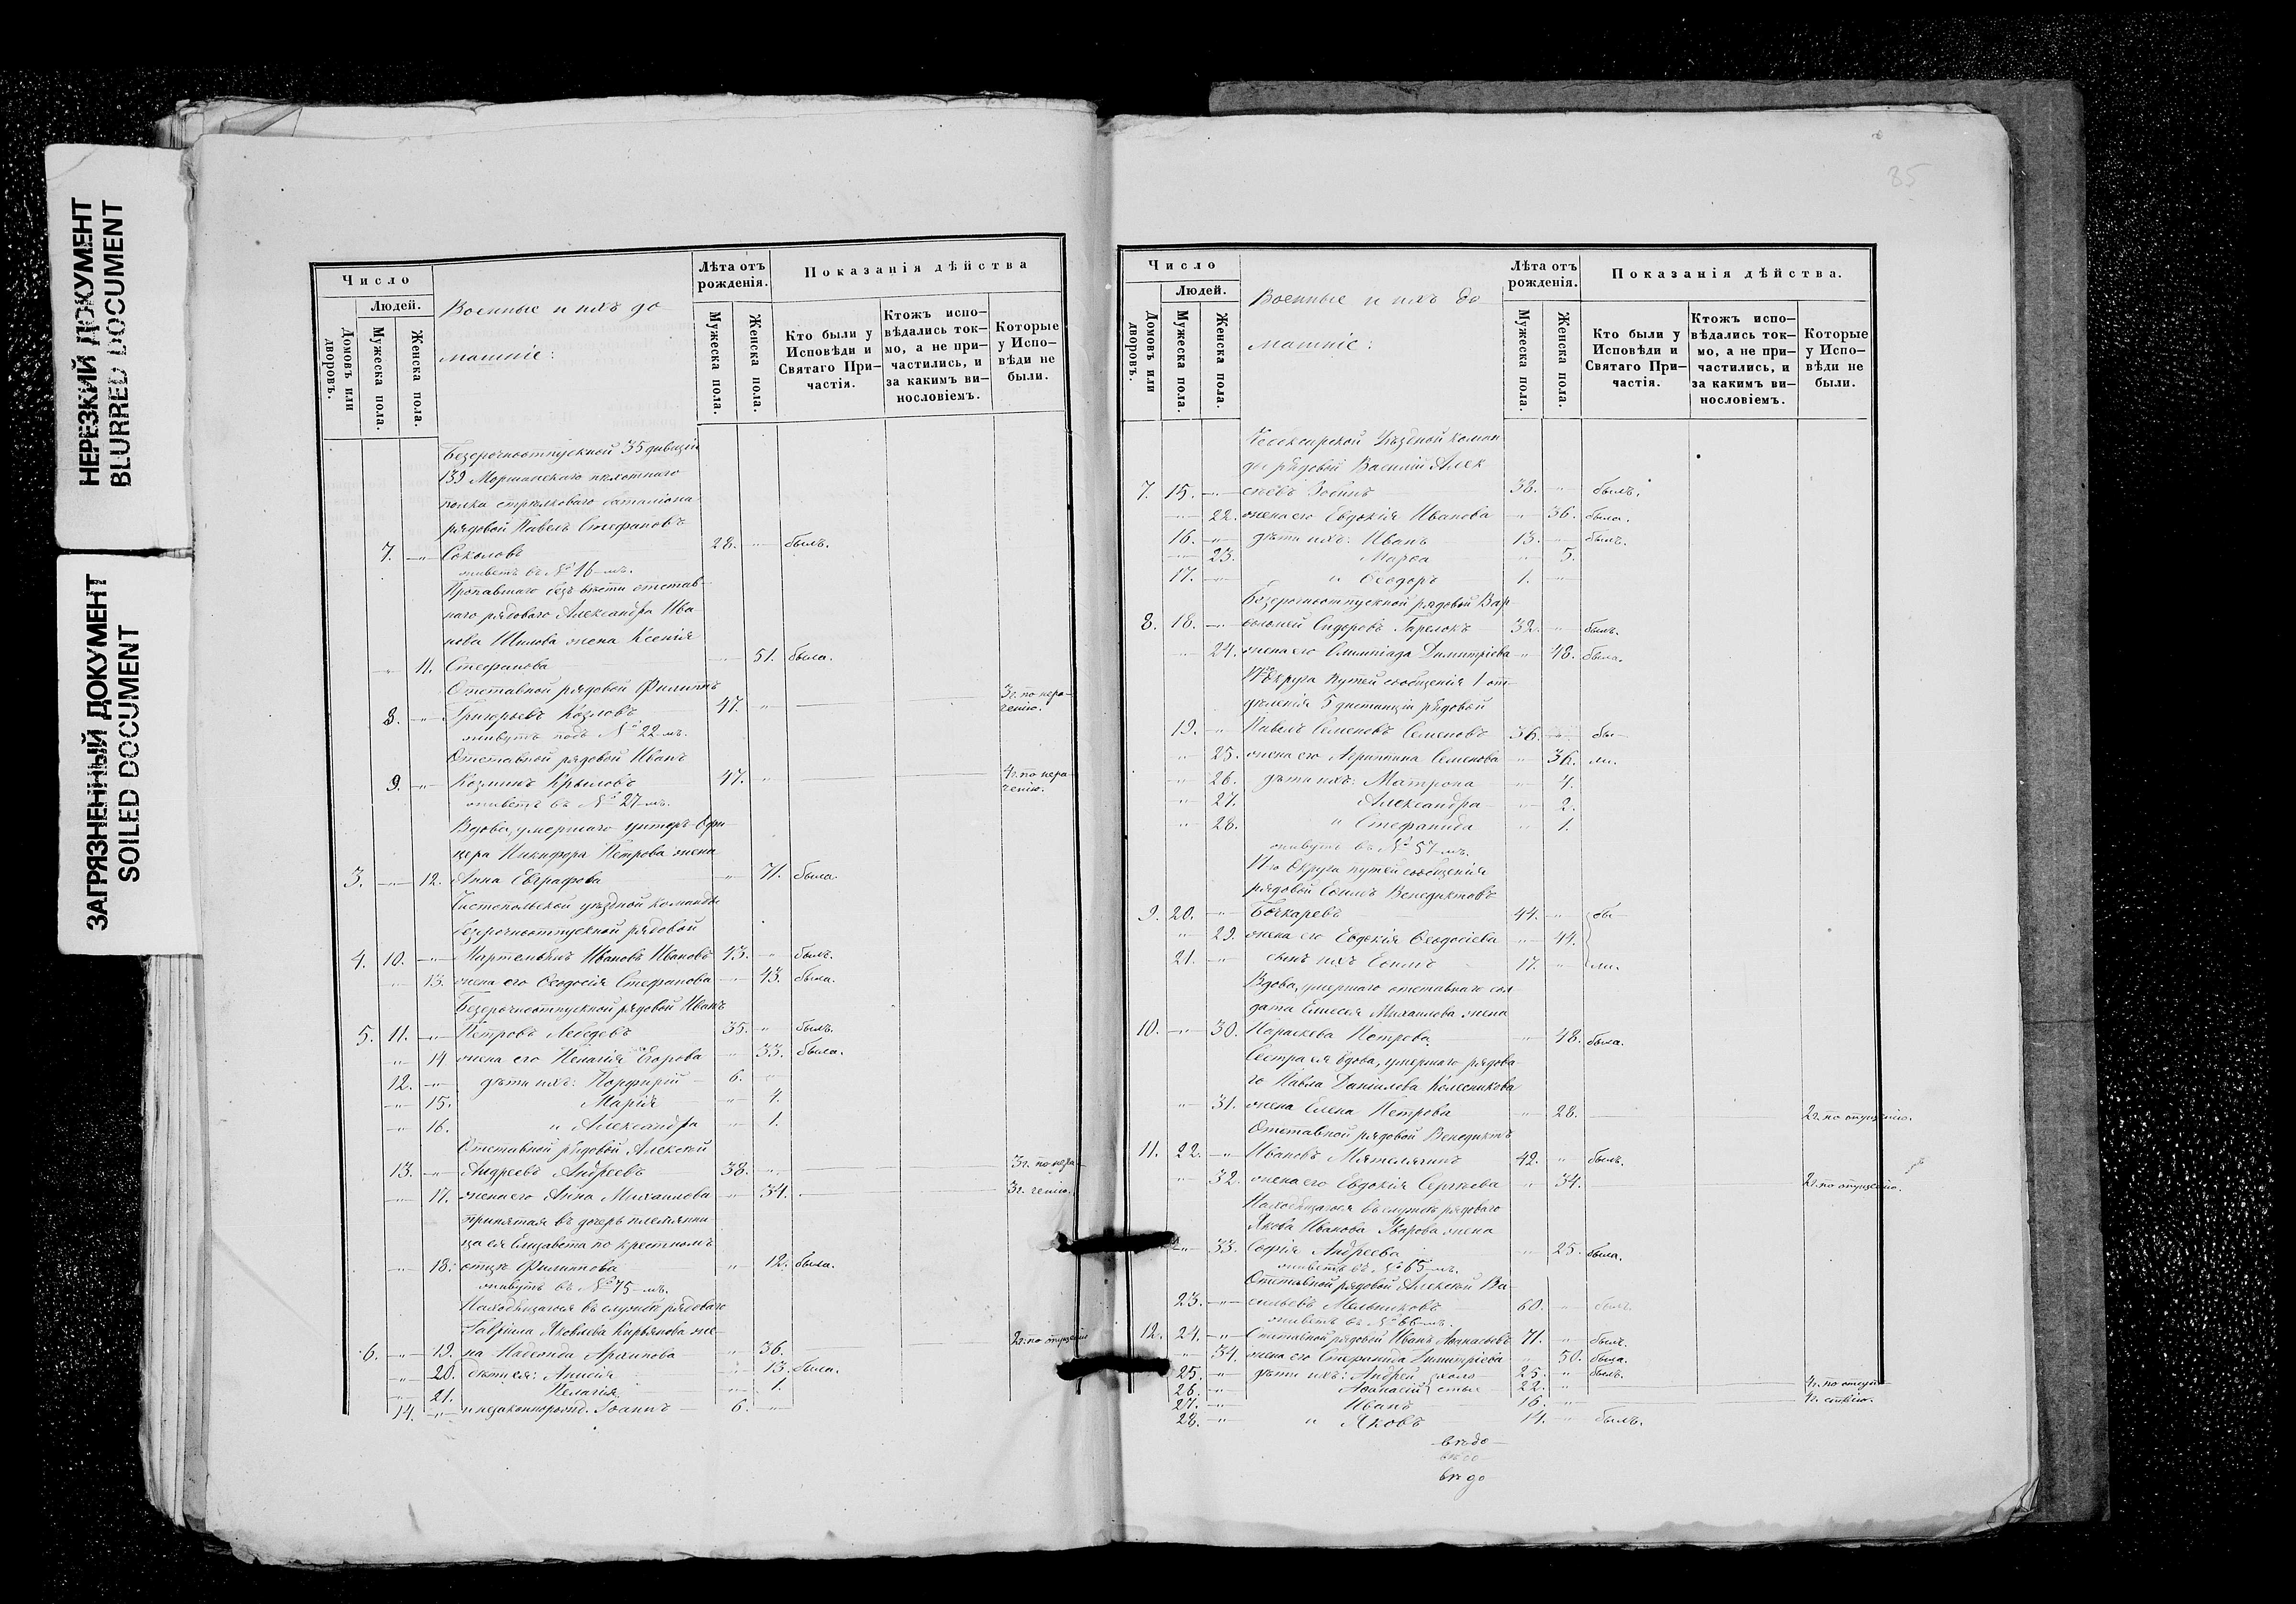 НЕРЕЗКИЙ ДОКУМЕНТ
BLURRED DOCUMENT
ЗАГРЯЗНЕННЫЙ ДОКУМЕНТ
SOILED DOCUMENT
Число
Людей.
Домовъ или дворовъ.
Мужеска пола.
Женска пола.
Военные и ихъ до
машніе:
Лѣта отъ рожденія.
Мужеска пола.
Женска пола.
Показанія дѣйства
Кто были у Исповѣди и Святаго При-частія.
Ктожъ испо-вѣдались ток-мо, а не при-частились, и за какимъ ви-нословіемъ.
Которые у Испо-вѣди не были.
Безсрочноотпускной 35 дивизіи
139 Моршанскаго пехотнаго
полка стрѣлковаго баталіона
рядовой Павелъ Стефановъ
7. -"- Соколовъ 28. " былъ.
живетъ въ № 16-мъ.
Пропавшаго безъ вѣсти отстав-
наго рядоваго Александра Ива-
нова Шилова жена Ксенія
-"- 11. Стефанова 51. была.
Отставной рядовой Филиппъ
8. " Григорьевъ Козловъ 47. " 3г. по нера-ченію.
живутъ подъ № 22-мъ.
Отставной рядовой Иванъ
9. -"- Козминъ Крыловъ 47. " 4г. по нера-ченію.
живетъ въ № 27-мъ.
Вдова, умершаго унтеръ-Офи-
цера Никифора Петрова жена
3. -"- 12. Анна Евграфова " 71. была.
Чистопольской уѣздной команды
безсрочноотпускной рядовой
4. 10. -"- Мартемьянъ Ивановъ Ивановъ 43. " былъ.
-"- 13. жена его Ѳеодосія Стефанова 43. была.
Безсрочноотпускной рядовой Иванъ
5. 11. -"- Петровъ Лебедевъ 35. " былъ.
" 14 жена его Пелагія Егорова " 33. была.
12. -"- дѣти ихъ: Порфирій 6. "
-"- 15. Марія " 4.
-"- 16. и Александра " 1.
Отставной рядовой Алексѣй
13. -"- Андреевъ Андреевъ 38. " 3г. по нера-
" 17. жена его Анна Михаилова " 34. 3г. ченію.
принятая въ дочерь племянни
ца ея Елизавета по крестномъ
-"- 18. отцѣ Филиппова " 12. была.
живутъ въ № 75-мъ.
Находящагося въ службѣ рядоваго
Гавріила Яковлева Кирьянова же-
6. -"- 19. на Надежда Архипова " 36. 2г. по опущенію
-"- 20. дѣти ея: Анисія " 13. была.
-"- 21. Пелагія " 1.
14. -"- и незаконнорожд. Іоаннъ 6. "
85
Число
Людей.
Домовъ или дворовъ.
Мужеска пола.
Женска пола.
Военные и ихъ до
машніе:
Лѣта отъ рожденія.
Мужеска пола.
Женска пола.
Показанія дѣйства.
Кто были у Исповѣди и Святаго При-частія.
Ктожъ испо-вѣдались ток-мо, а не при-частились, и за какимъ ви-нословіемъ.
Которые у Испо-вѣди не были.
Чебоксарской Уѣздной коман
ды рядовой Василій Алек
7. 15. -"- сѣевъ Зобинъ 38. " былъ.
-"- 22. жена его Евдокія Иванова " 36. была.
16. -"- дѣти ихъ: Иванъ 13. " былъ.
-"- 23. Марѳа " 5.
17. -"- и Ѳеодоръ 1. -"-
Безсрочноотпускной рядовой Вар-
8. 18. -"- ѳоломей Сидоровъ 32. " былъ.
" 24. жена его Олимпіада Димитріева " 48. была.
Округа Путей сообщенія 1 от-
дѣленія 5 дистанціи рядовой
19. -"- Павелъ Семеновъ Семеновъ 36. " бы-
" 25. жена его Агриппина Семенова " 36. ли.
" 26. дѣти ихъ: Матрона " 4.
" 27. Александра " 2.
" 28. и Стефанида " 1.
живутъ въ № 57-мъ.
11-го Округа путей сообщенія
рядовой Ѳока Венедиктовъ
9. 20. -"- Бочкаревъ 44. " бы-
" 29. жена его Евдокія Ѳеодосіева " 44.
21. -"- сынъ ихъ 17. " ли.
Вдова, умершаго отставнаго сол
дата Елисея Михаилова жена
10. -"- 30. Параскева Петрова 48. была.
Сестра ея вдова, умершаго рядова
го Павла Даніилова Колесникова
" 31. жена Елена Петрова " 28. 2г. по опущенію.
Отставной рядовой Венедиктъ
11. 22. -"- Ивановъ 42. " былъ.
" 32. жена его Евдокія Сергѣева " 34. 2г. по опущенію.
Находящагося въ службѣ рядоваго
Якова Иванова Уварова жена
-"- 33. Софія Андреева " 25. была.
живетъ въ № 65-мъ.
Отставной рядовой Алексѣй Ва-
23. -"- сильевъ Мельниковъ 60. " былъ
живетъ въ № 66-мъ.
12. 24. -"- Отставной рядовой Иванъ Аѳанасьевъ 71. " былъ.
-"- 34. жена его Стефанида Димитріева " 50. была.
25. -"- дѣти ихъ: Андрей холо 25. " былъ.
26. -"- Аѳанасій стые 22. " 4г. по отсут-
27. -"- Иванъ 16. " 4г. ствію.
28. -"- и Яковъ 14. " былъ.